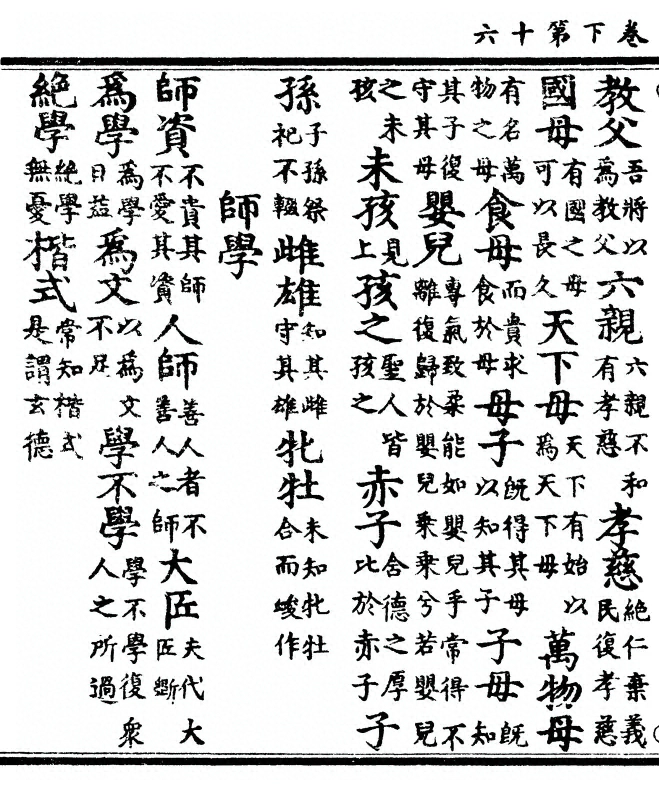 卷下第十六
教父吾將以爲教父六親六親不和有孝慈孝慈絶仁棄義民復孝慈
國母有國之母可以長久天下母天下有始以爲天下母萬物母
有名萬物之母食母而貴求食於母母子旣得其母以知其子子母旣知
其子復守其母嬰兒專氣致柔能如嬰兒乎常得不離復歸於嬰兒乘乘兮若嬰兒
之未孩未孩見上孩之聖人皆孩之赤子含德之厚比於赤子子
孫子孫祭祀不輟雌雄知其雌守其雄牝牡未知牝牡合而峻作
師學
師資不貴其師不愛其資人師善人者不善人之師大匠夫代大匠斲
爲學爲學日益爲文以爲文不足學不學學不學復衆人之所過
絶學絶學無憂楷式常知楷式是謂玄德